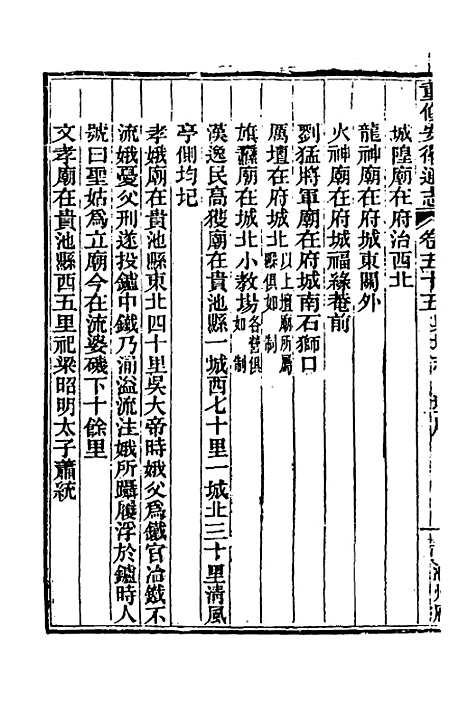 重修安徽通志 卷五十五
城隍廟在府治西北
龍神廟在府城東關外
火神廟在府城福緣菴前
劉猛將軍廟在府城南石獅口
厲壇在府城北以上壇廟所屬縣俱如制
旗纛廟在府城北小教場各營俱如制
漢逸民高獲廟在貴池縣一城西七十里一城北三十里清風
亭側均圮
孝娥廟在貴池縣東北四十里吳大帝時娥父爲鐵官冶鐵不
流娥憂父刑遂投鑪中鐵乃湧溢流注娥所躡履浮於鑪時人
號曰聖姑爲立廟今在流婆磯下十餘里
文孝廟在貴池縣西五里祀梁昭明太子蕭統